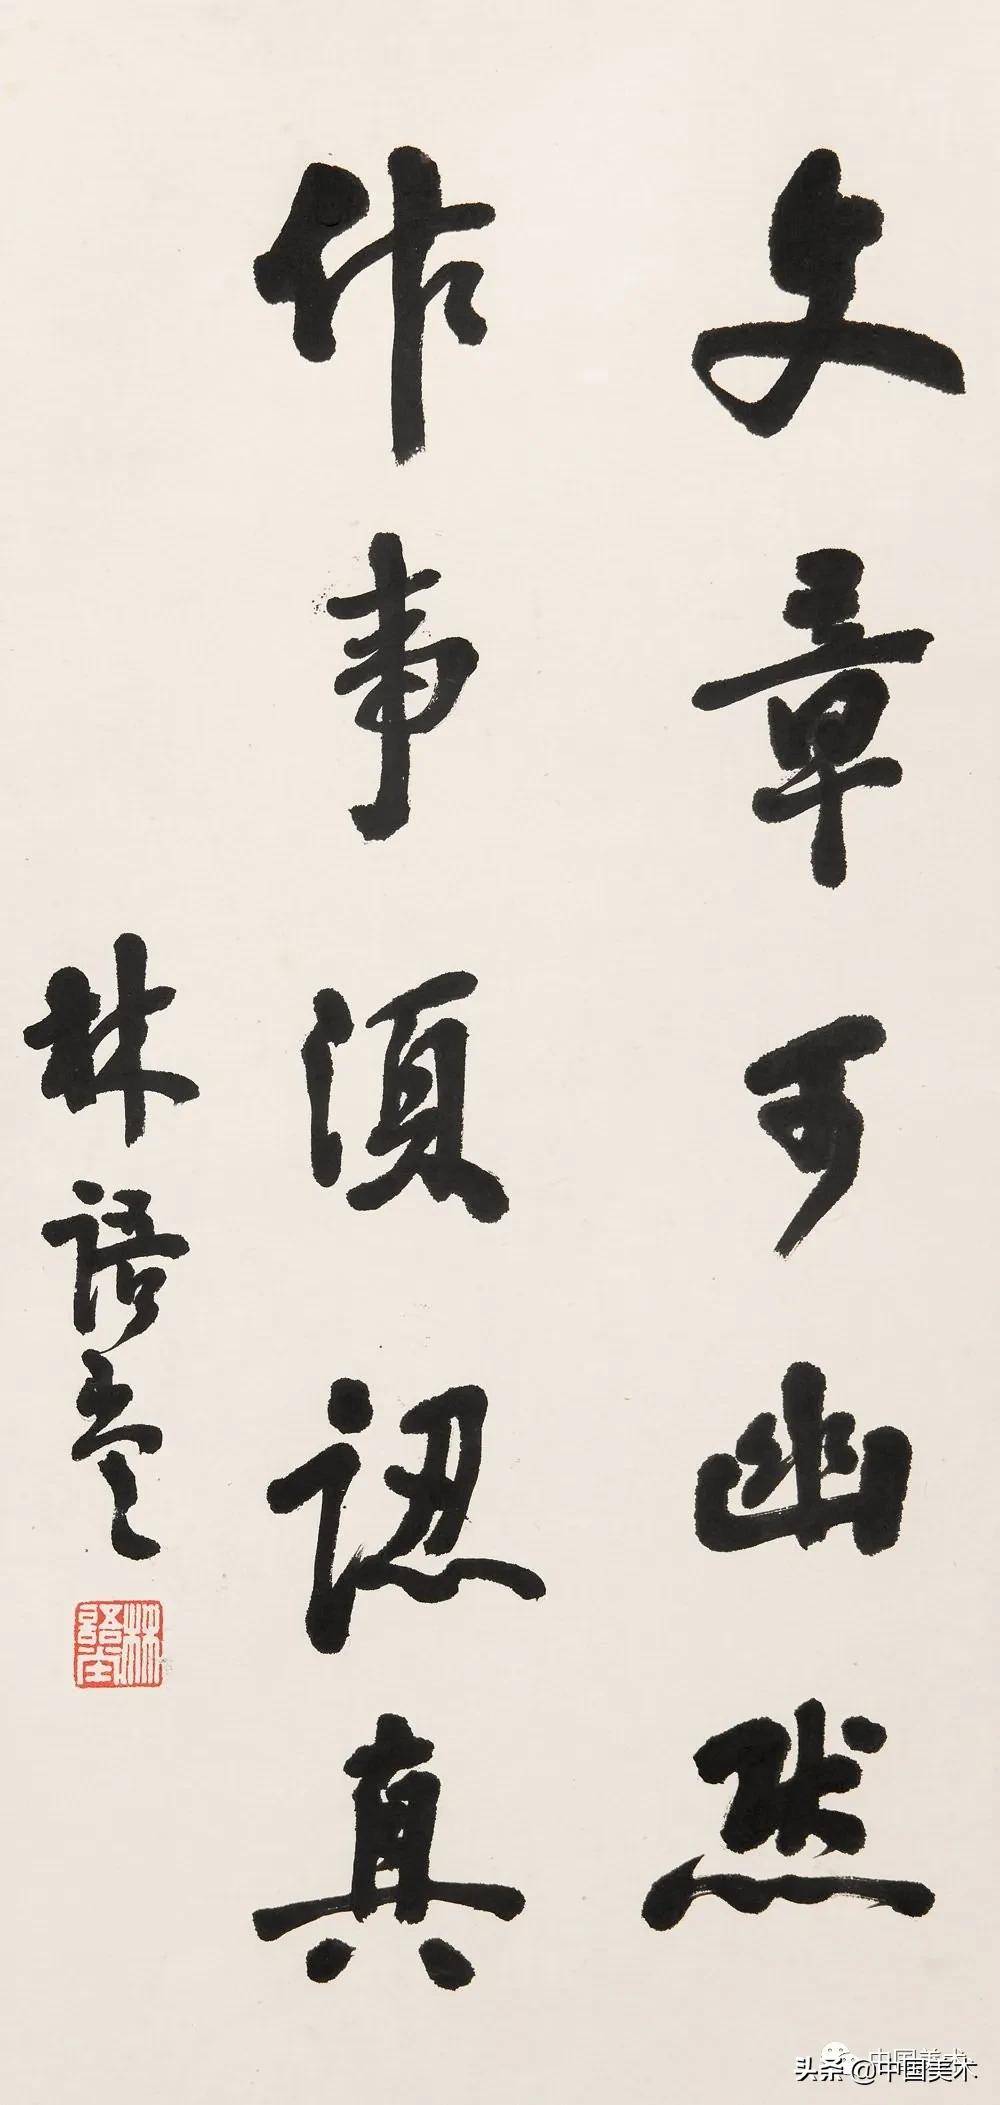 文章可幽然
作事須認真
林語堂
林語堂
头条@中国美术
中国美术